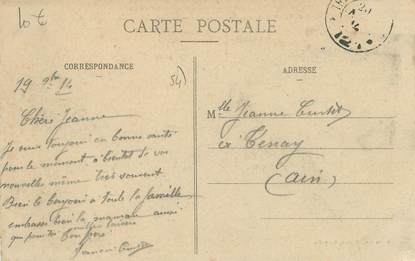 10 €
CARTE POSTALE
CORRESPONDANCE
ADRESSE
54)
19 9bre 14
Chère Jeanne
Je suis toujour en bonne santé
pour le moment a bientot de vos
nouvelle même très souvent
Bien le bonjour à toute la famille
embrasse bien la maman aussi
que pour toi
ton frère
Mlle Jeanne
à Tenay
(Ain)
12